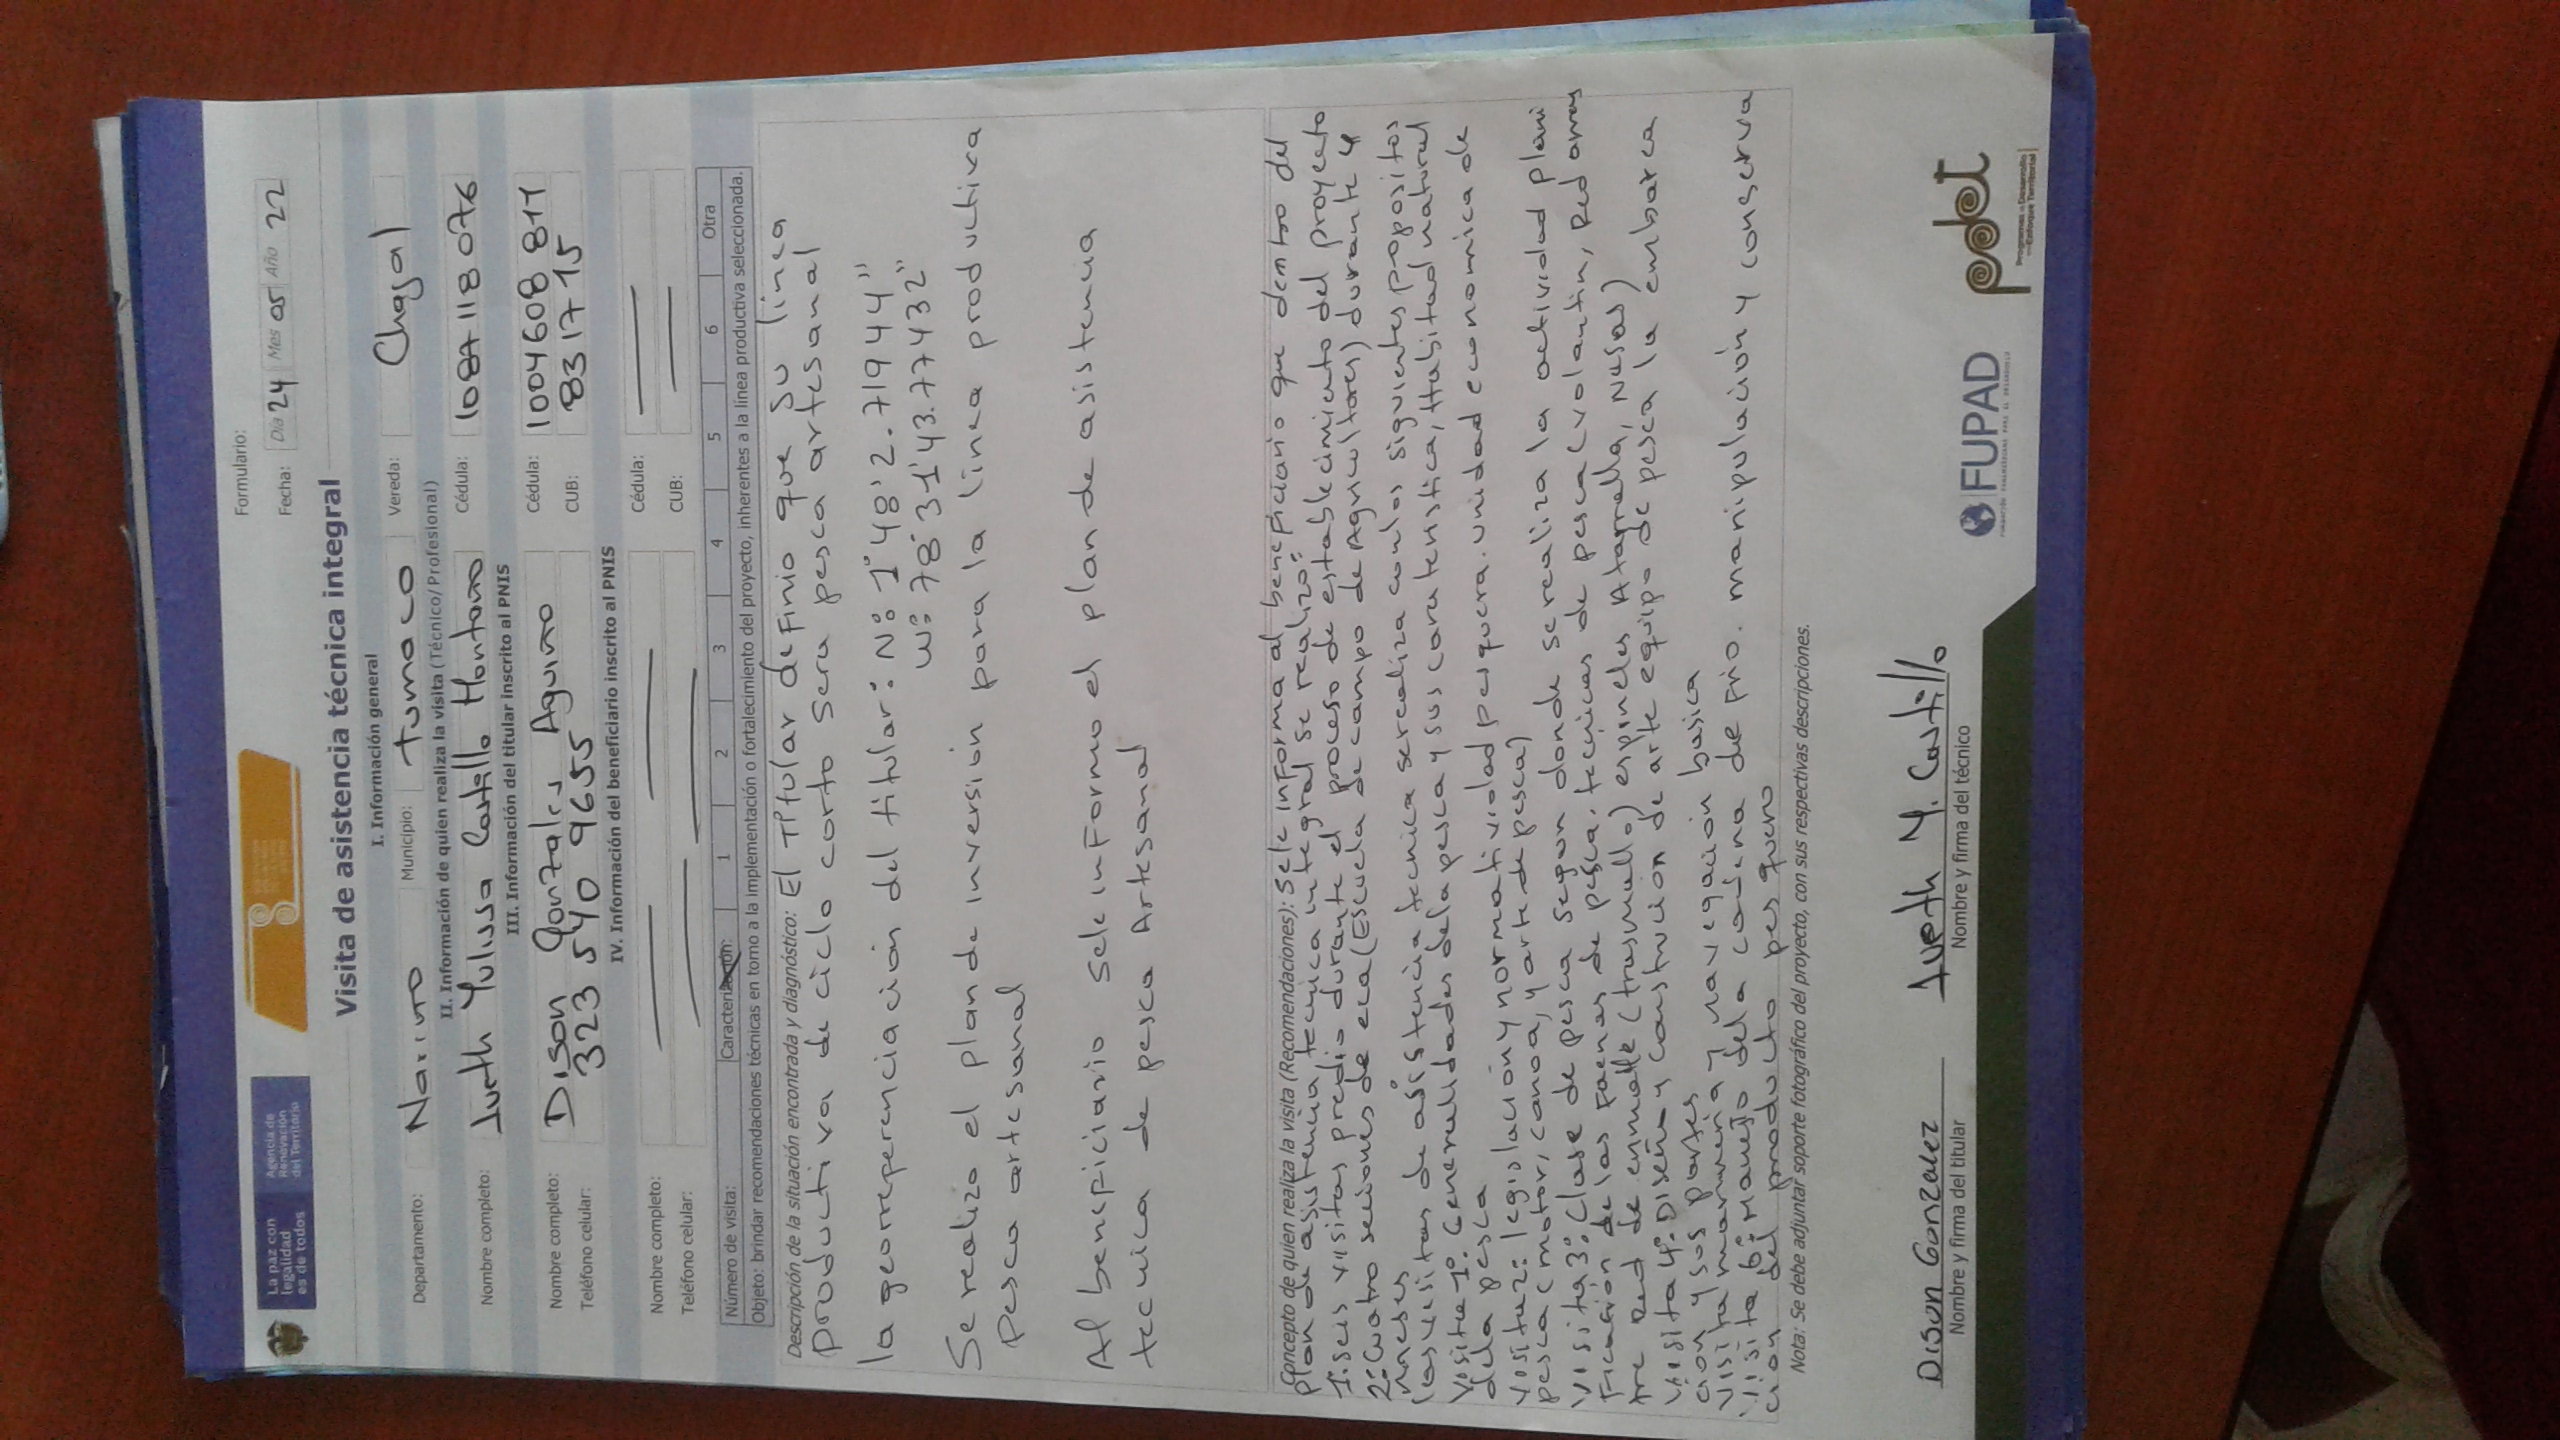 La paz con
legalidad
es de todos
Agencia de
Renovación
del Territorio
Formulario:
Fecha: Día 24 Mes 05 Año 22
Visita de asistencia técnica integral
I. Información general
Departamento: Nariño Municipio: Tumaco Vereda: Chagal
II. Información de quien realiza la visita (Técnico/Profesional)
Nombre completo: Iveth Yulissa Castillo Montaño Cédula: 1087118076
III. Información del titular inscrito al PNIS
Nombre completo: Dison Gonzales Aguino Cédula: 1004608811
Teléfono celular: 323 540 9655 CUB: 831715
IV. Información del beneficiario inscrito al PNIS
Nombre completo: Cédula:
Teléfono celular: CUB:
Número de visita: Caracterización: 1 2 3 4 5 6 Otra
Objeto: brindar recomendaciones técnicas en torno a la implementación o fortalecimiento del proyecto, inherentes a la línea productiva seleccionada.
Descripción de la situación encontrada y diagnóstico: El Titular definio que su linea
productiva de ciclo corto sera pesca artesanal
la georreperenciación del titular: N: 1° 48' 2.71944"
W: 78° 31' 43.77432"
Se realizo el plan de inversion para la linea productiva
Pesca artesanal
Al beneficiario se le informo el plan de asistencia
tecnica de pesca Artesanal
Concepto de quien realiza la visita (Recomendaciones): se le informa al beneficiario que dentro del
plan de asistencia tecnica integral se realizo:
1. seis visitas predio durante el proceso de establecimiento del proyecto
2. Cuatro sesiones de eca (Escuela de campo de Agricultores) durante 4
meses
las visitas de asistencia tecnica se realiza con los siguientes propositos
Visita 1°. Generalidades de la pesca y sus caracteristica, Habitad natural
de la pesca
Visita 2: legislación y normatividad pesquera. unidad economica de
pesca (motor, canoa, y arte de pesca)
Visita 3°. Clase de pesca segun donde se realiza la actividad plani
ficación de las Faenas de pesca, tecnicas de pesca (volantin, Red
tre Red de enmalle (trasmallo) espineles Atarralla, Nasas)
Visita 4°. Diseño y construción de arte equipo de pesca la embarca
cion y sus partes
Visita marineria y navegación basica
Visita 6° Manejo de la cadena de Frio. manipulación y conserva
cion del producto pesquero
Nota: Se debe adjuntar soporte fotográfico del proyecto, con sus respectivas descripciones.
Dison Gonzalez Iveth Y. Castillo
Nombre y firma del titular Nombre y firma del técnico
FUPAD
FUNDACIÓN PANAMERICANA PARA EL DESARROLLO
pdet
Programas de Desarrollo
con Enfoque Territorial